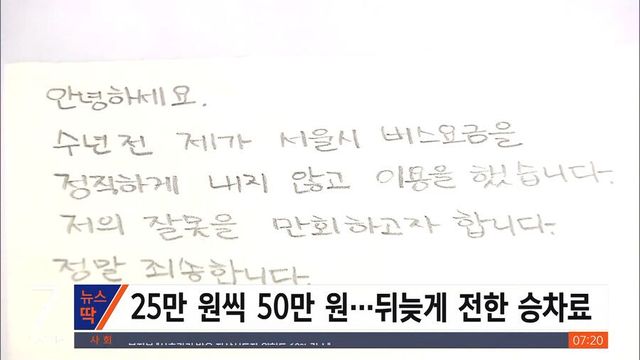 안녕하세요.
수년전 제가 서울시 버스요금을
정직하게 내지 않고 이용을 했습니다.
저의 잘못을 만회하고자 합니다.
정말 죄송합니다.
뉴스
딱
25만 원씩 50만 원…뒤늦게 전한 승차료
사회
07:20